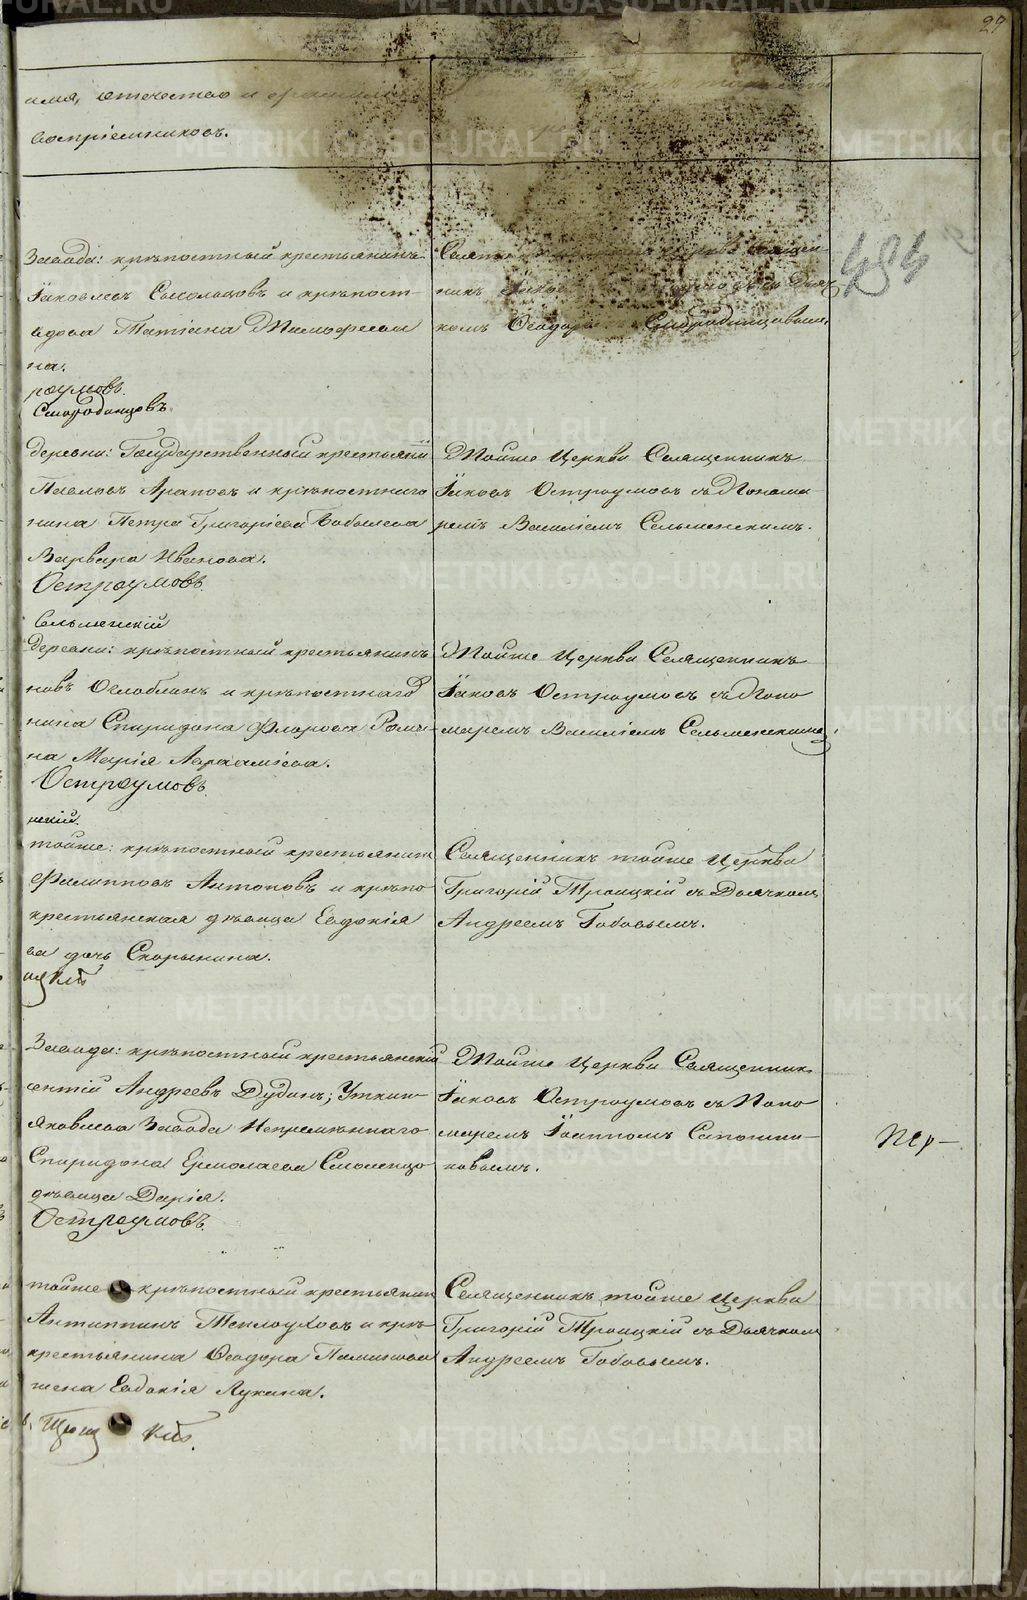 29
имя, отечество и фамилія
воспріемниковъ.
484
Завода: крѣпостный крестьянинъ
Іаковлевъ Смольцовъ и крѣпост-
вдова Татіана Тимофеева
на.
роумовъ.
Смородинцовъ.
комъ Ѳеодоромъ Смородинцовымъ.
Деревни: Государственный крестьянин
Павловъ Араповъ и крѣпостнаго
нина Петра Григоріева Бобылева
Варвара Иванова.
Остроумовъ.
Сельменскій
Тойже Церкви Священникъ
Іаковъ Остроумовъ съ Понома-
ремъ Василіемъ Сельменскимъ.
Деревни: крѣпостный крестьянинъ
новъ Оглоблинъ и крѣпостнаго
нина Спиридона Флорова
на Марія Авраамiева.
Остроумовъ.
нскій.
Тойже Церкви Священникъ
Іаковъ Остроумовъ съ Поно
маремъ Василіемъ Сельменскимъ.
тойже: крѣпостный крестьянин
Филипповъ Антоновъ и крѣпо
крестьянская дѣвица Евдокія
ва дочь Скорынина.
цкій
Священникъ тойже Церкви
Григорій Троицкій съ Дьячкомъ
Андреемъ Бабовымъ.
Завода: крѣпостный крестьянскій
ентій Андреевъ Дудинъ; Уткин-
яковлева Завода Непремѣннаго
Спиридона Ермолаева Смоленцо
дѣвица Дарія.
Остроумовъ.
Тойже Церкви Священник
Іаковъ Остроумовъ съ Поно
маремъ Іоанномъ Сапожни-
ковымъ.
Пер-
тойже крѣпостный крестьянин
Антиппинъ Теплоуховъ и крѣ-
крестьянина Ѳеодора
жена Евдокія Лукина.
Троиц кій.
Священникъ тойже Церкви
Григорій Троицкій съ Дьячкомъ
Андреемъ Бабовымъ.
METRIKI.GASO-URAL.RU